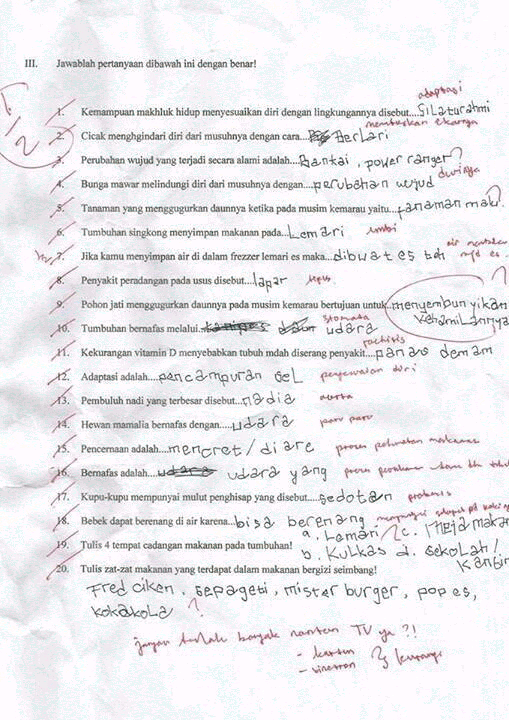 III. Jawablah pertanyaan dibawah ini dengan benar!
adaptasi
1. Kemampuan makhluk hidup menyesuaikan diri dengan lingkungannya disebut....Silaturahmi
memutuskan ekornya
2. Cicak menghgindari diri dari musuhnya dengan cara... Berlari
3. Perubahan wujud yang terjadi secara alami adalah....Bantai, power ranger?
durinya
4. Bunga mawar melindungi diri dari musuhnya dengan....perubahan wujud
5. Tanaman yang menggugurkan daunnya ketika pada musim kemarau yaitu...tanaman mati.
6. Tumbuhan singkong menyimpan makanan pada....Lemari umbi
air
1/2 7. Jika kamu menyimpan air di dalam frezzer lemari es maka...dibwat es teh mjd es.
8. Penyakit peradangan pada usus disebut....lapar
9. Pohon jati menggugurkan daunnya pada musim kemarau bertujuan untuk..menyembunyikan
kehamilannya
stomata
10. Tumbuhan bernafas melalui... udara
11. Kekurangan vitamin D menyebabkan tubuh mdah diserang penyakit....panas demam
12. Adaptasi adalah....pencampuran sel penyesuaian diri
13. Pembuluh nadi yang terbesar disebut...nadia aorta
14. Hewan mamalia bernafas dengan.....udara paru paru
15. Pencernaan adalah....mencret/diare proses makanan
16. Bernafas adalah.... udara yang proses
17. Kupu-kupu mempunyai mulut penghisap yang disebut....sedotan probosis
18. Bebek dapat berenang di air karena...bisa berenang
19. Tulis 4 tempat cadangan makanan pada tumbuhan! a. Lemari c. meja makan
b. Kulkas d. sekolah/
kantin
20. Tulis zat-zat makanan yang terdapat dalam makanan bergizi seimbang!
Fred ciken, sepageti, mister burger, pop es,
kokakola ?
jangan terlalu banyak nonton TV ya ?!
- kartun
- sinetron kurangi